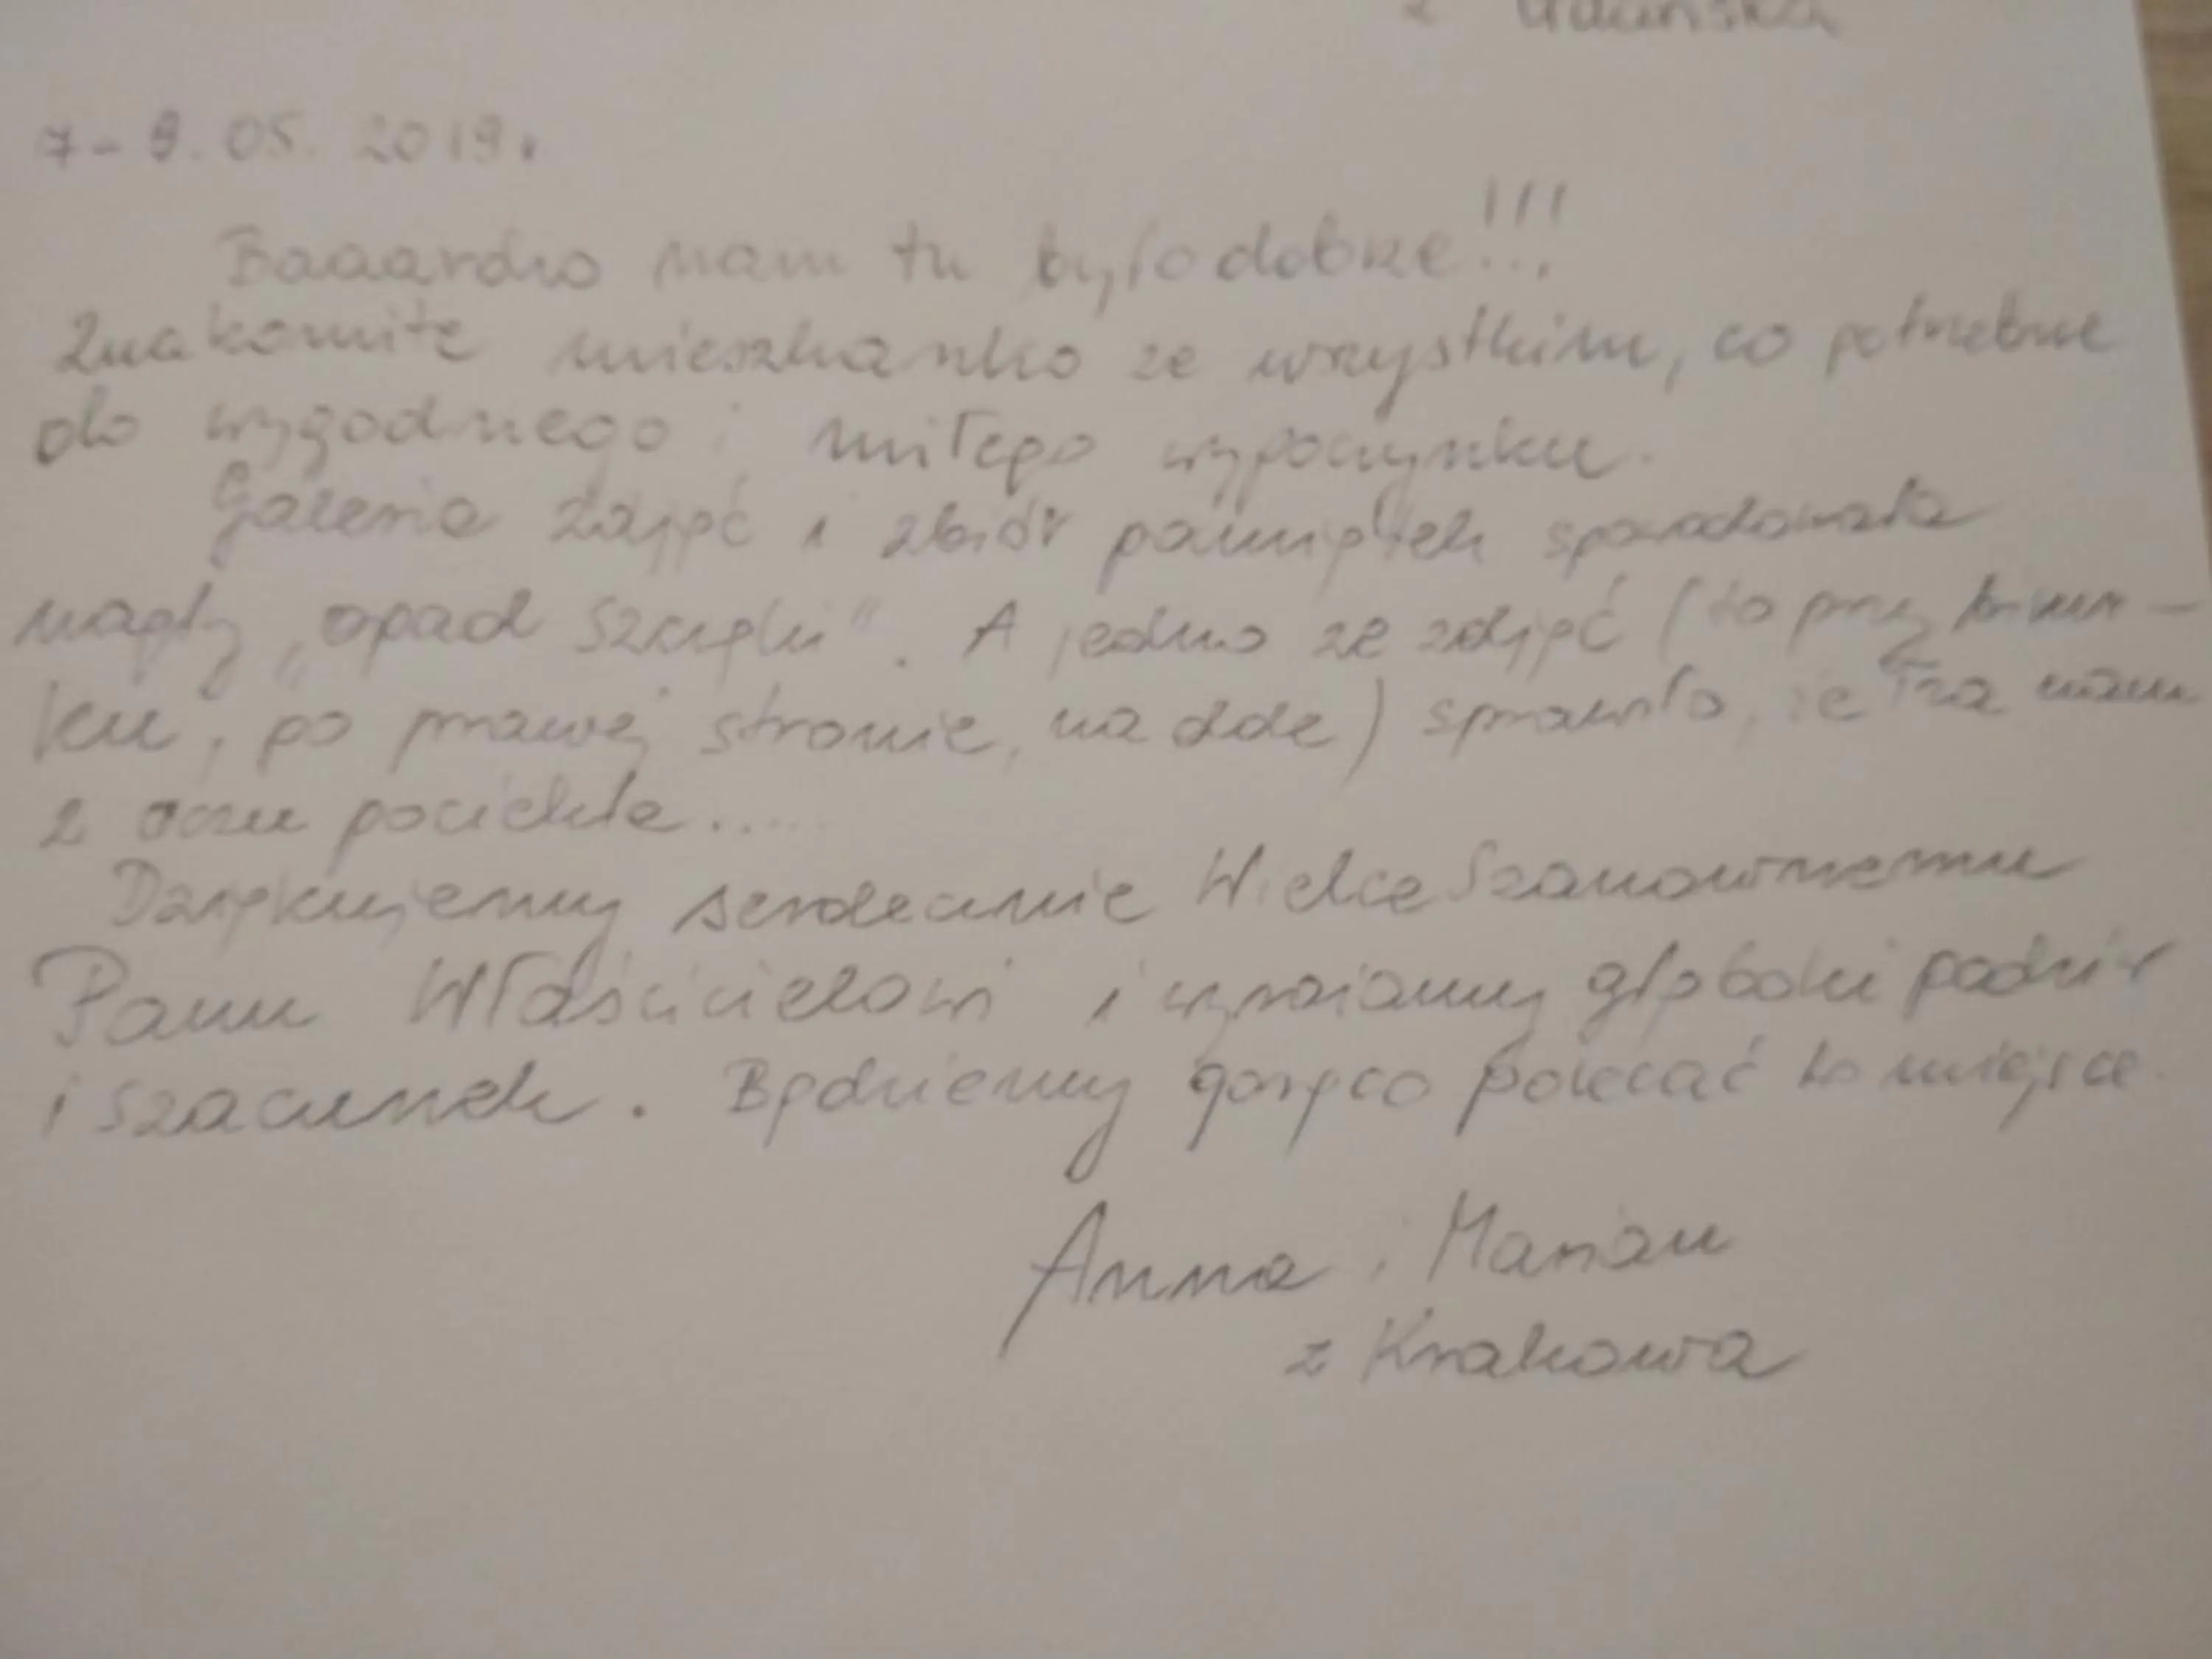 z Gdańska
7-9.05.2019r.
Baaardzo nam tu było dobrze!!!
Znakomite mieszkanko ze wszystkim, co potrzebne
do wygodnego i miłego wypoczynku.
Galeria zdjęć i zbiór pamiątek spowodowała
nagły „opad szczęki". A jedno ze zdjęć (to przy
ku, po prawej stronie, na dole) sprawiło, że łza nam
z oczu pociekła.....
Dziękujemy serdecznie Wielce Szanownemu
Panu Właścicielowi i wyrażamy głęboki podziw
i szacunek. Będziemy gorąco polecać to miejsce.
Anna i Marian
z Krakowa